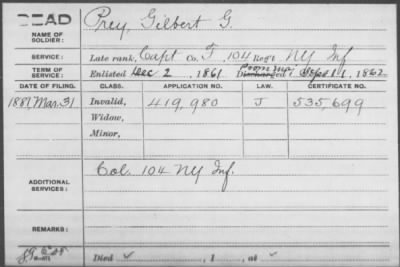 DEAD
NAME OF SOLDIER:
Prey, Gilbert G.
SERVICE:
Late rank, Capt Co. F, 104 Reg't NY Inf
TERM OF SERVICE:
Enlisted Dec 2, 1861, Discharged Sept 11, 1862
DATE OF FILING. CLASS. APPLICATION NO. LAW. CERTIFICATE NO.
1887, Mar. 31 Invalid, 419,980 J 535,699
Widow,
Minor,
ADDITIONAL SERVICES:
Col. 104 NY Inf.
REMARKS:
Died , 1 , at